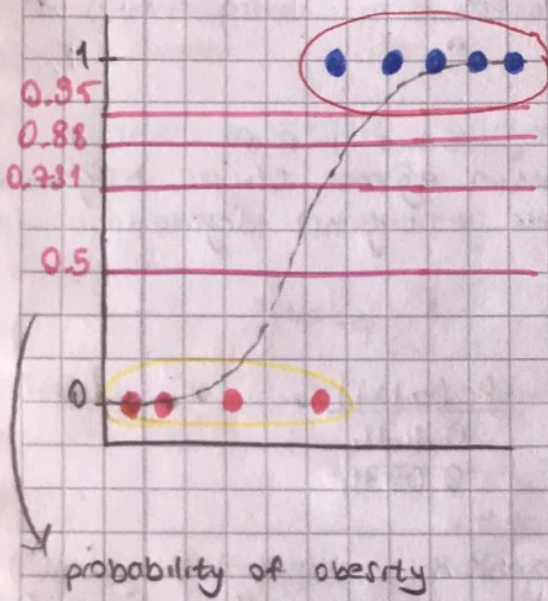 1
0.95
0.88
0.731
0.5
0
probability of obesity